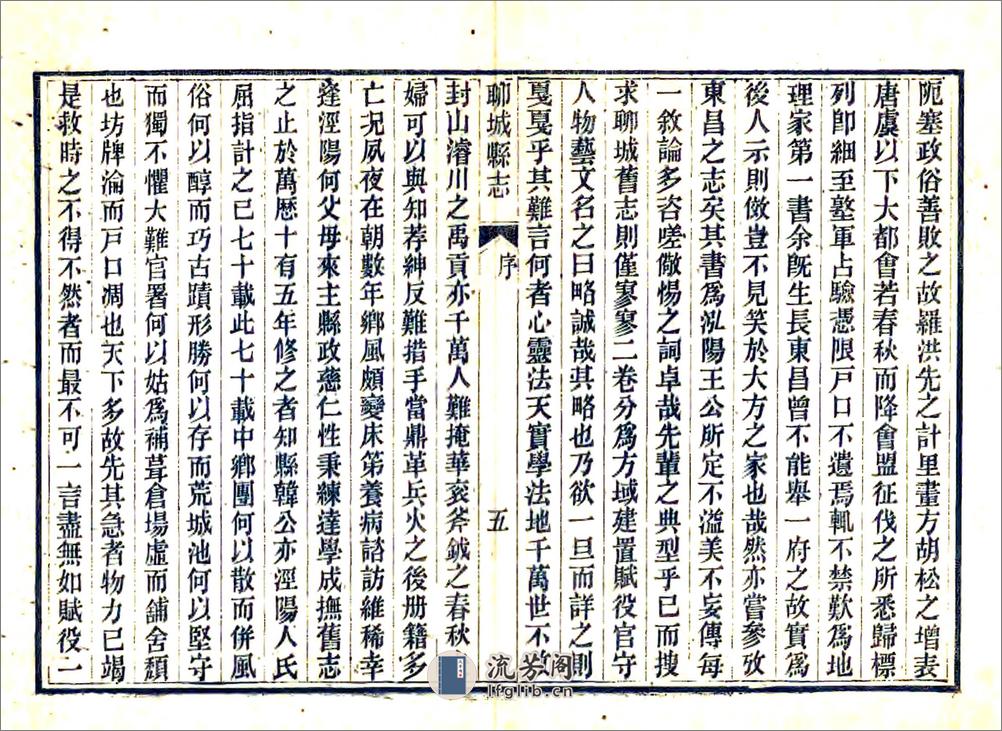 阨塞政俗善敗之故羅洪先之計里畫方胡松之增表
唐虞以下大都會若春秋而降會盟征伐之所悉歸標
列卽細至墪軍占驗憑限戸口不遺焉輒不禁歎爲地
理家第一書余旣生長東昌曾不能舉一府之故實爲
後人示則倣豈不見笑於大方之家也哉然亦嘗參攷
東昌之志矣其書爲泓陽王公所定不溢美不妄傳每
一敘論多咨嗟儆惕之詞卓哉先輩之典型乎已而搜
求聊城舊志則僅寥寥二卷分爲方域建置賦役官守
人物藝文名之曰略誠哉其略也乃欲一旦而詳之則
戛戛乎其難言何者心靈法天實學法地千萬世不
聊城縣志
序
五
封山濬川之禹貢亦千萬人難掩華衮斧鉞之春秋
婦可以與知荐紳反難措手當鼎革兵火之後册籍多
亡况夙夜在朝數年鄉風頗變床笫養病諮訪維稀幸
逢涇陽何父母來主縣政慈仁性秉練達學成撫舊志
之止於萬曆十有五年修之者知縣韓公亦涇陽人氏
屈指計之已七十載此七十載中鄉團何以散而併風
俗何以醇而巧古蹟形勝何以存而荒城池何以堅守
而獨不懼大難官署何以姑爲補葺倉場虛而舖舍頽
也坊牌淪而戸口凋也天下多故先其急者物力已竭
是救時之不得不然者而最不可一言盡無如賦役二
流芳阁
lfglib.cn